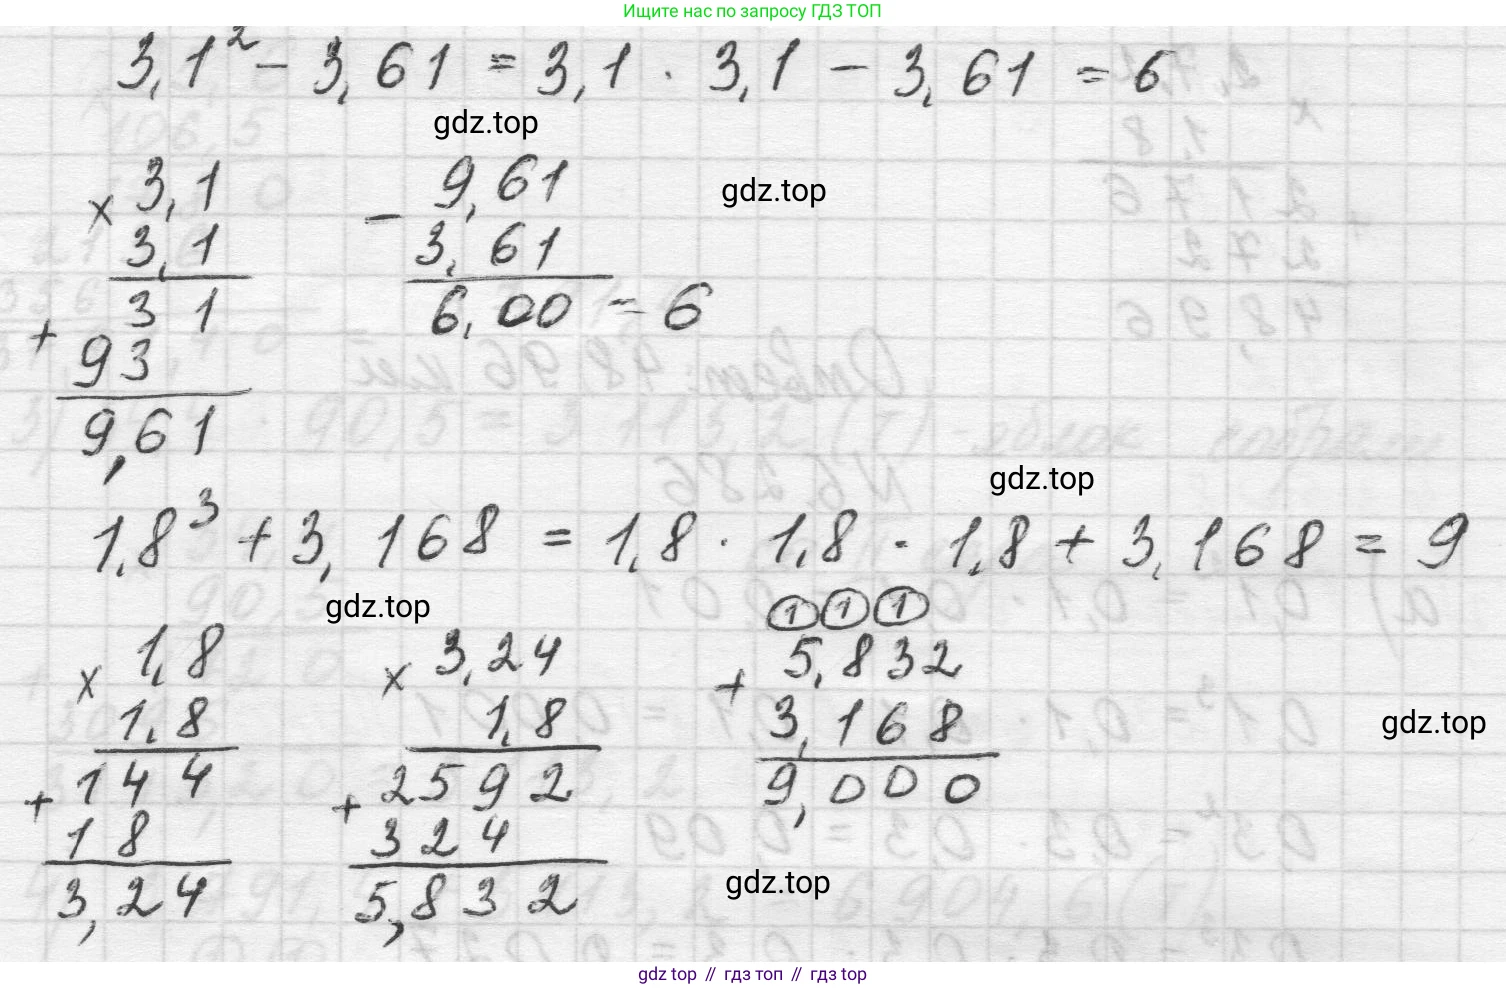 Ищите нас по запросу ГДЗ ТОП
3,1² - 3,61 = 3,1 · 3,1 - 3,61 = 6
gdz.top
gdz.top
× 3,1
3,1
31
+ 93
9,61
- 9,61
3,61
6,00 = 6
gdz.top
1,8³ + 3,168 = 1,8 · 1,8 · 1,8 + 3,168 = 9
gdz.top
× 1,8
1,8
144
+ 18
3,24
× 3,24
1,8
2592
+ 324
5,832
1 1 1
+ 5,832
3,168
9,000
gdz.top
gdz.top
gdz top // гдз топ // гдз top